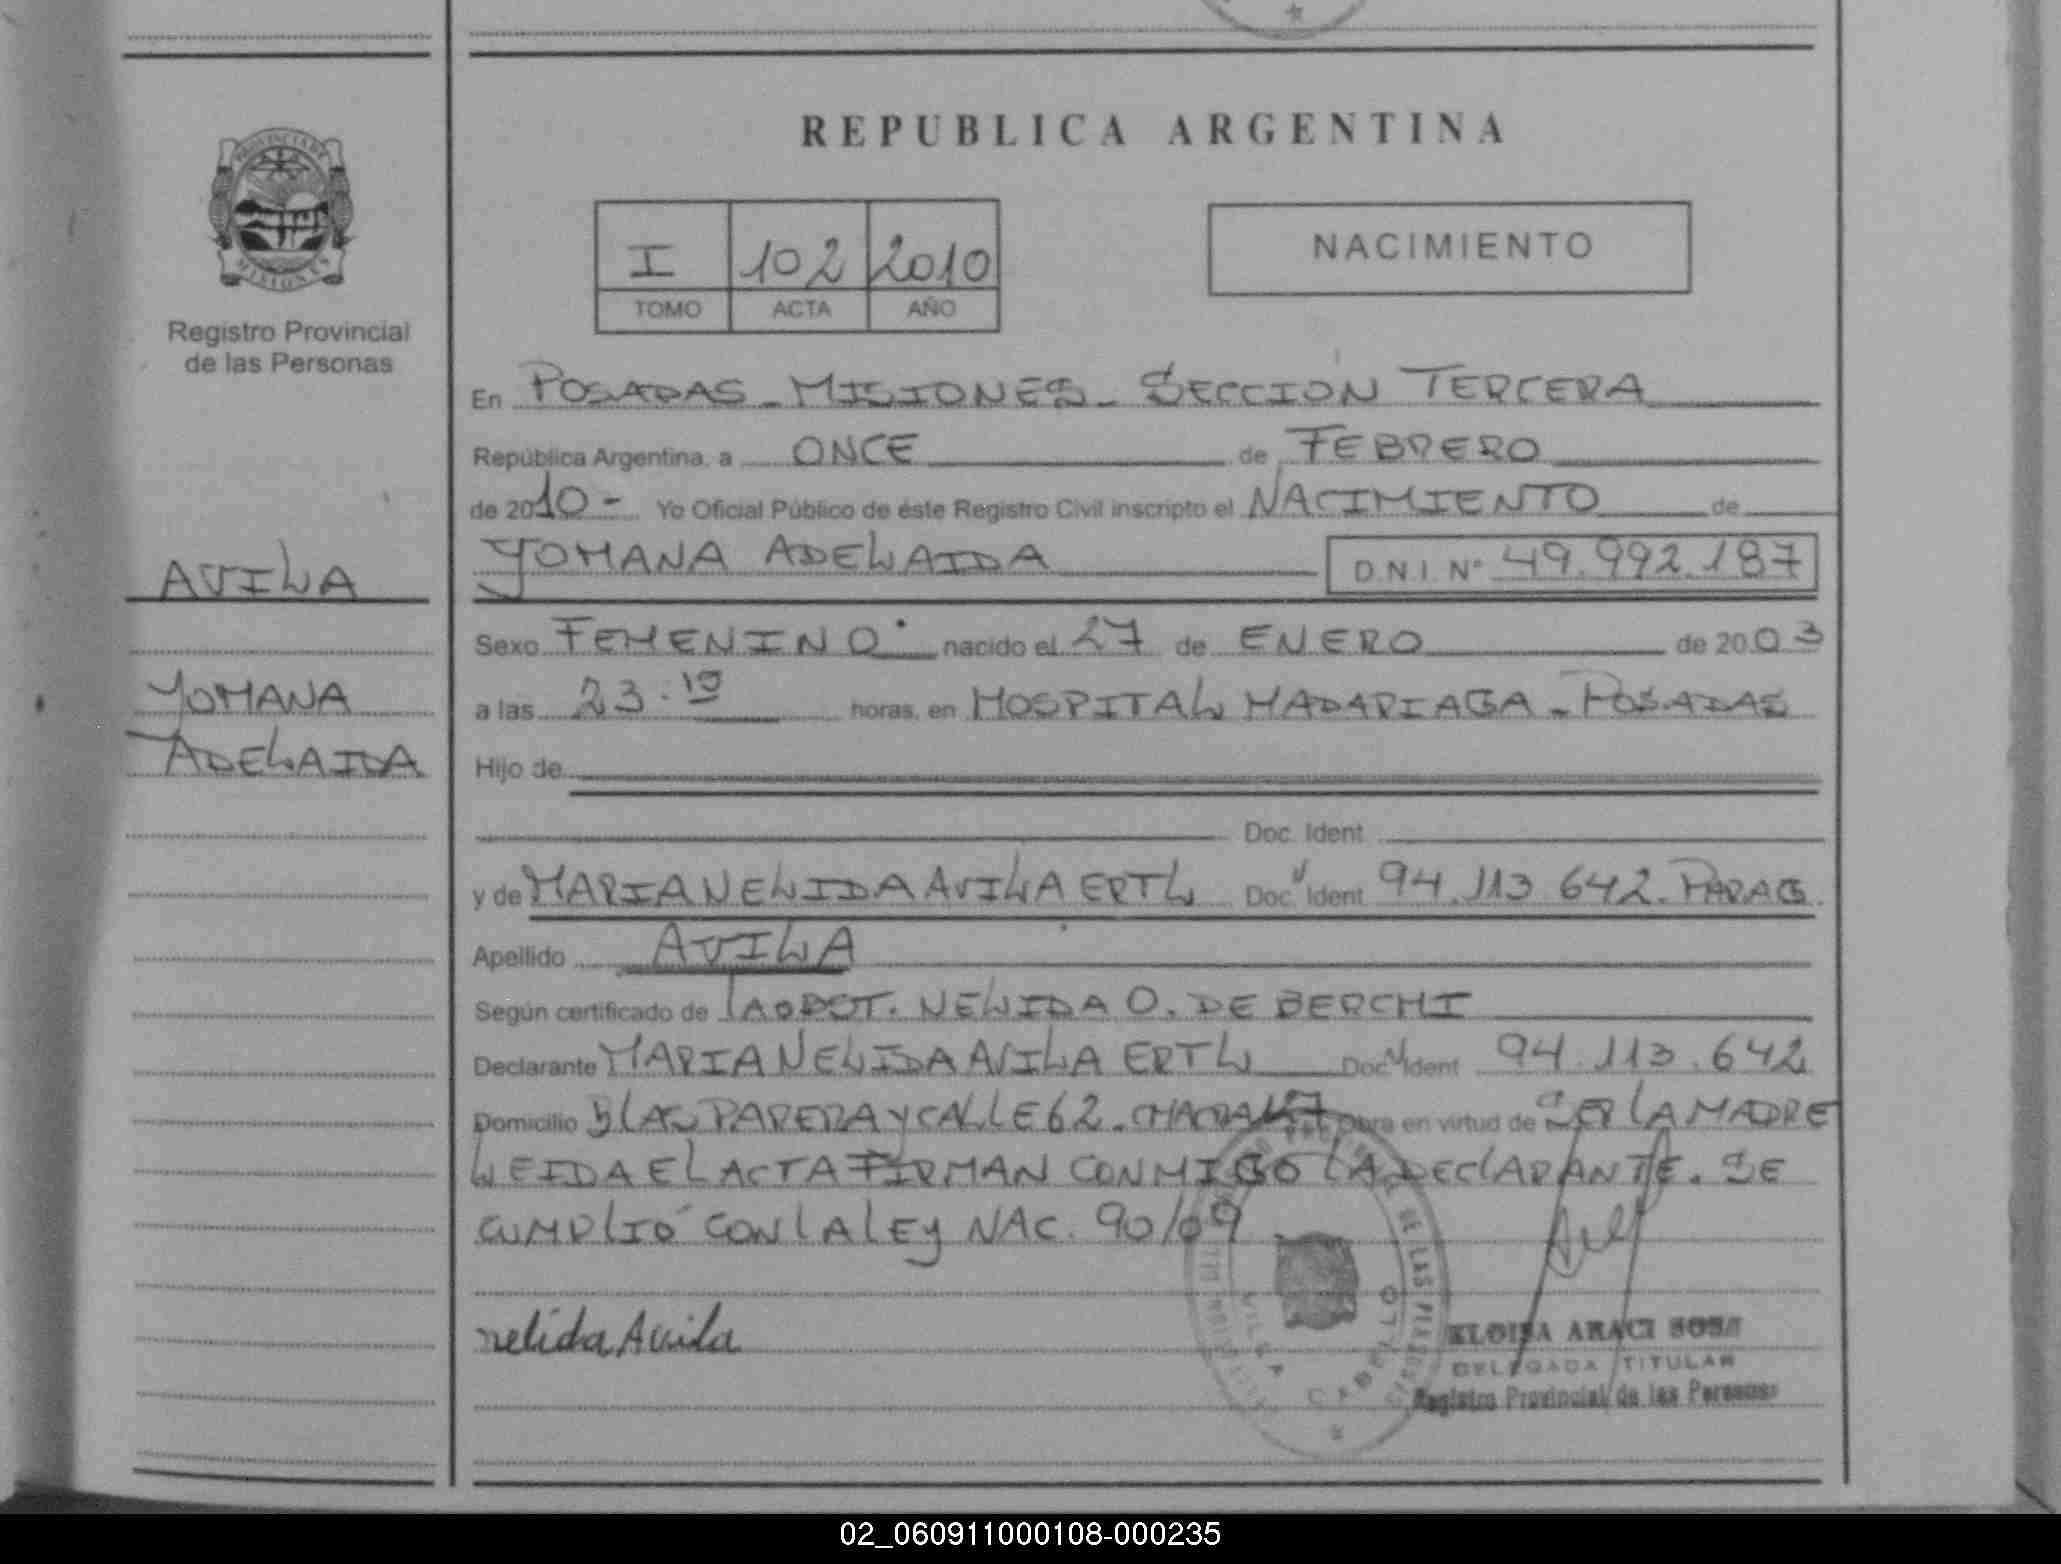 REPUBLICA ARGENTINA
PROVINCIA DE
MISIONES
I 102 2010
TOMO ACTA AÑO
NACIMIENTO
Registro Provincial
de las Personas
En POSADAS - MISIONES - SECCION TERCERA
República Argentina, a ONCE de FEBRERO
de 2010 - Yo Oficial Público de éste Registro Civil inscripto el NACIMIENTO de
AVILA
YOHANA ADELAIDA D.N.I. Nº 49.992.187
Sexo FEMENINO nacido el 27 de ENERO de 2003
YOHANA
a las 23:10 horas, en HOSPITAL MADARIAGA - POSADAS
ADELAIDA
Hijo de
Doc. Ident
y de MARIA NELIDA AVILA ERTL Doc. Ident 94.113.642. PARAG.
Apellido AVILA
Según certificado de LA OBST. NELIDA O. DE BERCHI
Declarante MARIA NELIDA AVILA ERTL Doc. Ident 94.113.642
Domicilio BLAS PARERA Y CALLE 62. CHACRA Obra en virtud de SER LA MADRE
LEIDA EL ACTA FIRMAN CONMIGO LA DECLARANTE. SE
CUMPLIO CON LA LEY NAC. 90/09
nelida Avila
VILLA CABELLO
ELOISA ARACI SOSA
DELEGADA TITULAR
Registro Provincial de las Personas
02_060911000108-000235